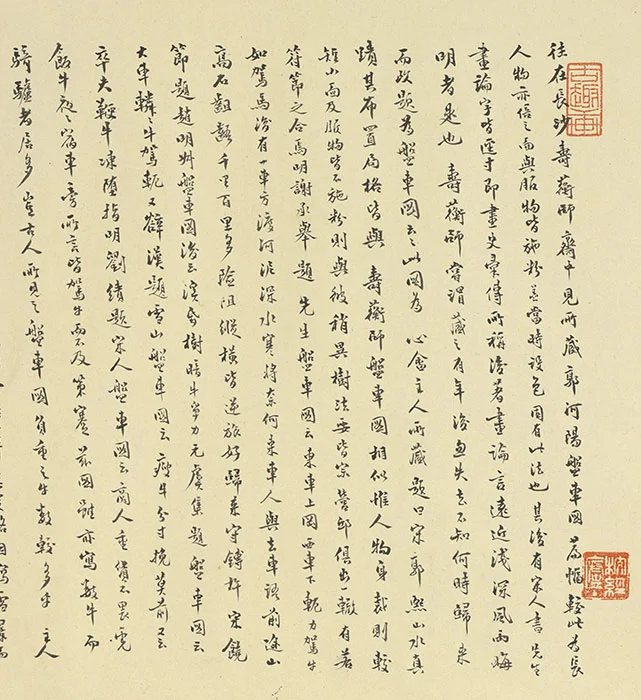 往在長沙壽蘅師齋中見所藏郭河陽盤車圖為幅較此為長
人物亦倍之而與服物皆施粉蓋當時設色固有此法也其後有宋人書先生
畫論字皆逕寸即畫史彙傳所稱著畫論言遠近淺深風雨晦
明者是也 壽蘅師嘗謂藏之有年後忽失去不知何時歸來
而改題為盤車圖云云此圖為 心畬主人所藏題曰宋郭熙山水真
蹟其布置局格皆與 壽蘅師盤車圖相似惟人物身裁則較
短小而及服物皆不施粉則與彼稍異樹法要皆宗營邱俱出一轍有若
符節之合焉明謝承舉題 先生盤車圖云東車上岡西車下軏力駕牛
如駕馬後有一車方渡河泥深水寒將奈何來車人與去車語前途山
高石齟齬千里百里多險阻縱橫皆逆旅好歸來守鎛杵 宋饒
節題趙明叔盤車圖後云溪昏樹暗牛努力元虞集題盤車圖云
大車轔轔牛駕軛又薛漢題雪山盤車圖云疲牛分寸挽莫前又云
卒夫鞭牛凍墮指明劉績題宋人盤車圖云商人重貨不畏虎
飯牛夜宿車旁所言皆駕牛而不及策蹇茲圖雖亦寫數牛而
騎驢者居多豈古人所見之盤車圖負重之牛數較多乎 主人